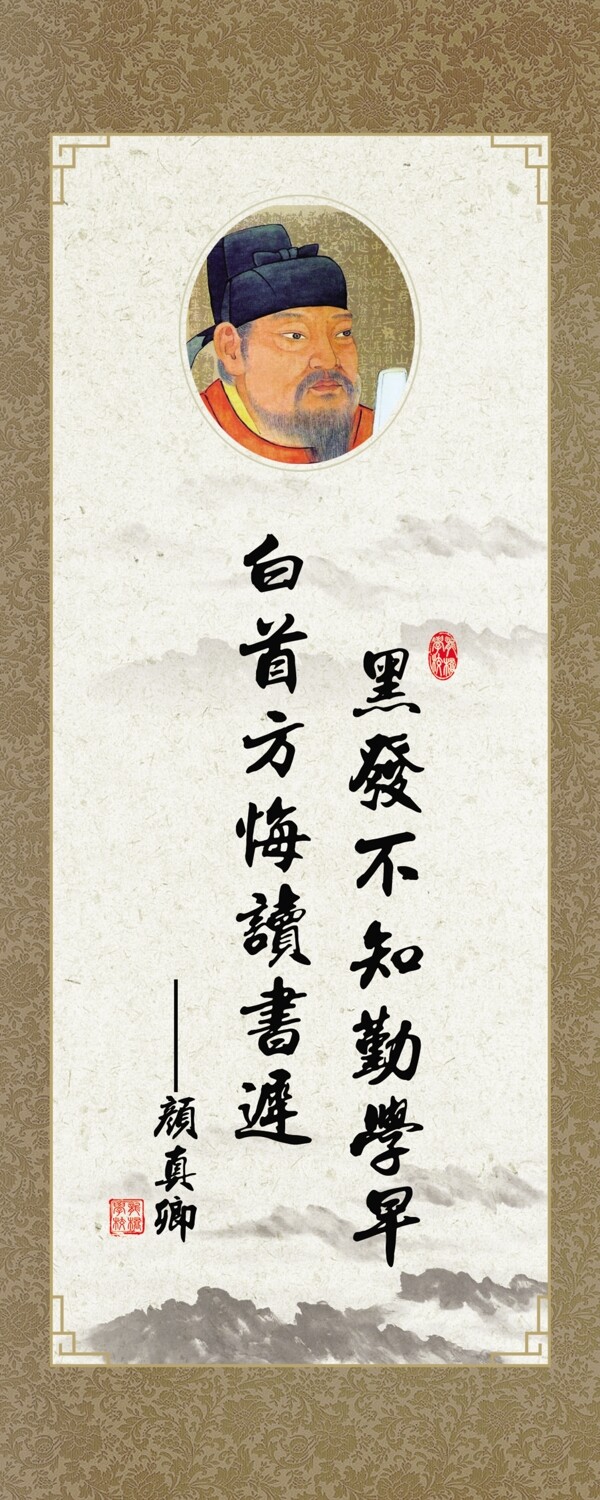 黑發不知勤學早
白首方悔讀書遲
——顔真卿